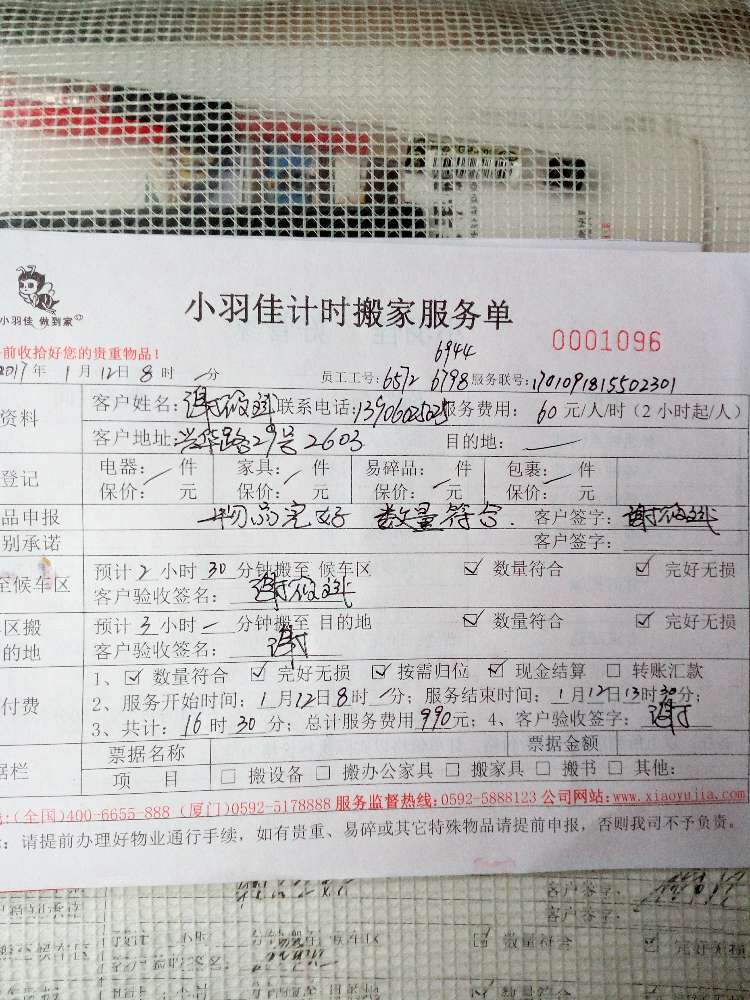 小羽佳 做到家
小羽佳计时搬家服务单
0001096
前收拾好您的贵重物品!
6944
2017年 1月12日8时 一分 员工工号:6572 6798 服务联号:1701091815502301
资料 客户姓名: 联系电话:13906025025 服务费用: 60 元/人/时(2小时起/人)
客户地址:兴华路29号2603 目的地:
登记 电器: 件 家具: 件 易碎品: 件 包裹: 件
保价: 元 保价: 元 保价: 元 保价: 元
品申报 物品完好 数量符合. 客户签字:
别承诺 客户签字:
至候车区 预计2小时30分钟搬至 候车区 ☑ 数量符合 ☑ 完好无损
客户验收签名:
区搬 预计3小时一分钟搬至 目的地 ☑ 数量符合 ☑ 完好无损
的地 客户验收签名: 谢
1、☑ 数量符合 ☑ 完好无损 ☑ 按需归位 ☑ 现金结算 □ 转账汇款
付费 2、服务开始时间:1月12日8时一分; 服务结束时间:1月12日13时30分;
3、共计:16时30分; 总计服务费用990元; 4、客户验收签字: 谢
票据名称 票据金额
据栏 项 目 □ 搬设备 □ 搬办公家具 □ 搬家具 □ 搬书 □ 其他:
:(全国)400-6655-888 (厦门)0592-5178888 服务监督热线:0592-5888123 公司网站:www.xiaoyujia.com
:请提前办理好物业通行手续,如有贵重、易碎或其它特殊物品请提前申报,否则我司不予负责。
客户签字:
客户签字:
数量符合 完好无损
数量符合